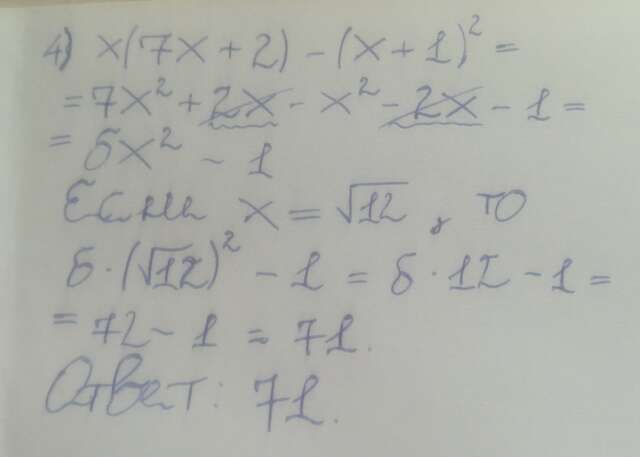 4) x(7x + 2) - (x + 1)² =
= 7x² + 2x - x² - 2x - 1 =
= 6x² - 1
Если x = √12, то
6·(√12)² - 1 = 6·12 - 1 =
= 72 - 1 = 71.
Ответ: 71.